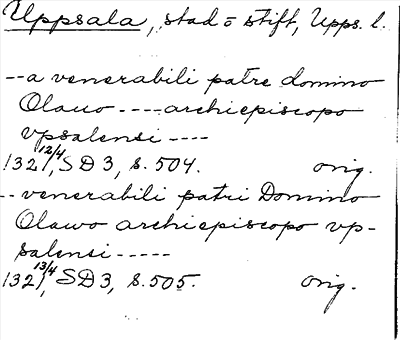 Uppsala, stad o stift, Upps. l.
-- a venerabili patre domino
Olauo ---- archiepiscopo
vpsalensi ----
1321 12/4, SD 3, s. 504. orig.
-- venerabili patri Domino
Olawo archiepiscopo vp-
salensi -----
1321 13/4, SD 3, s. 505. orig.